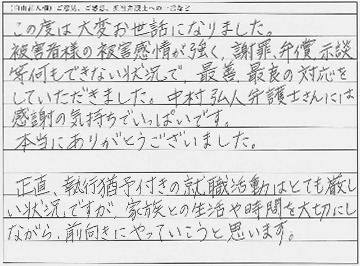 （自由記入欄）ご意見、ご感想、担当弁護士への一言など
この度は大変お世話になりました。
被害者様の被害感情が強く、謝罪、弁償、示談
等何もできない状況で、最善、最良の対応を
していただきました。中村弘人弁護士さんには
感謝の気持ちでいっぱいです。
本当にありがとうございました。
正直、執行猶予付きの就職活動はとても厳し
い状況ですが、家族との生活や時間を大切にし
ながら、前向きにやっていこうと思います。